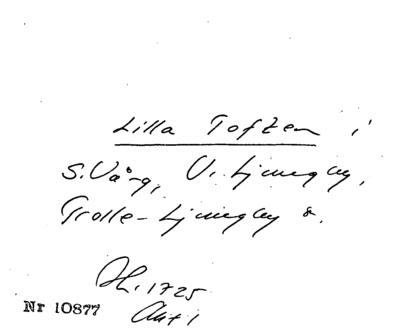 Lilla Toften i
S. Vång, V. Ljungby,
Trolle-Ljungby s.
H. 1725
Akt 1
Nr 10877